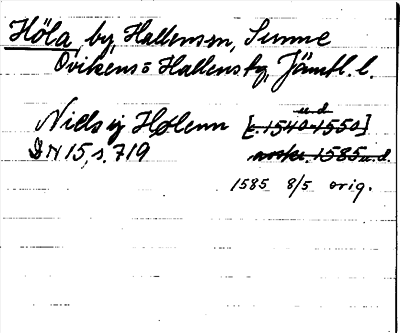 Höla, by, Hallensen, Sunne
Ovikens o Hallens tg, Jämtl. l.
Niels ij Hølenn [c. 1540-1550] u.d.
DN 15, s. 719 avskr. 1585 u.d.
1585 8/5 orig.